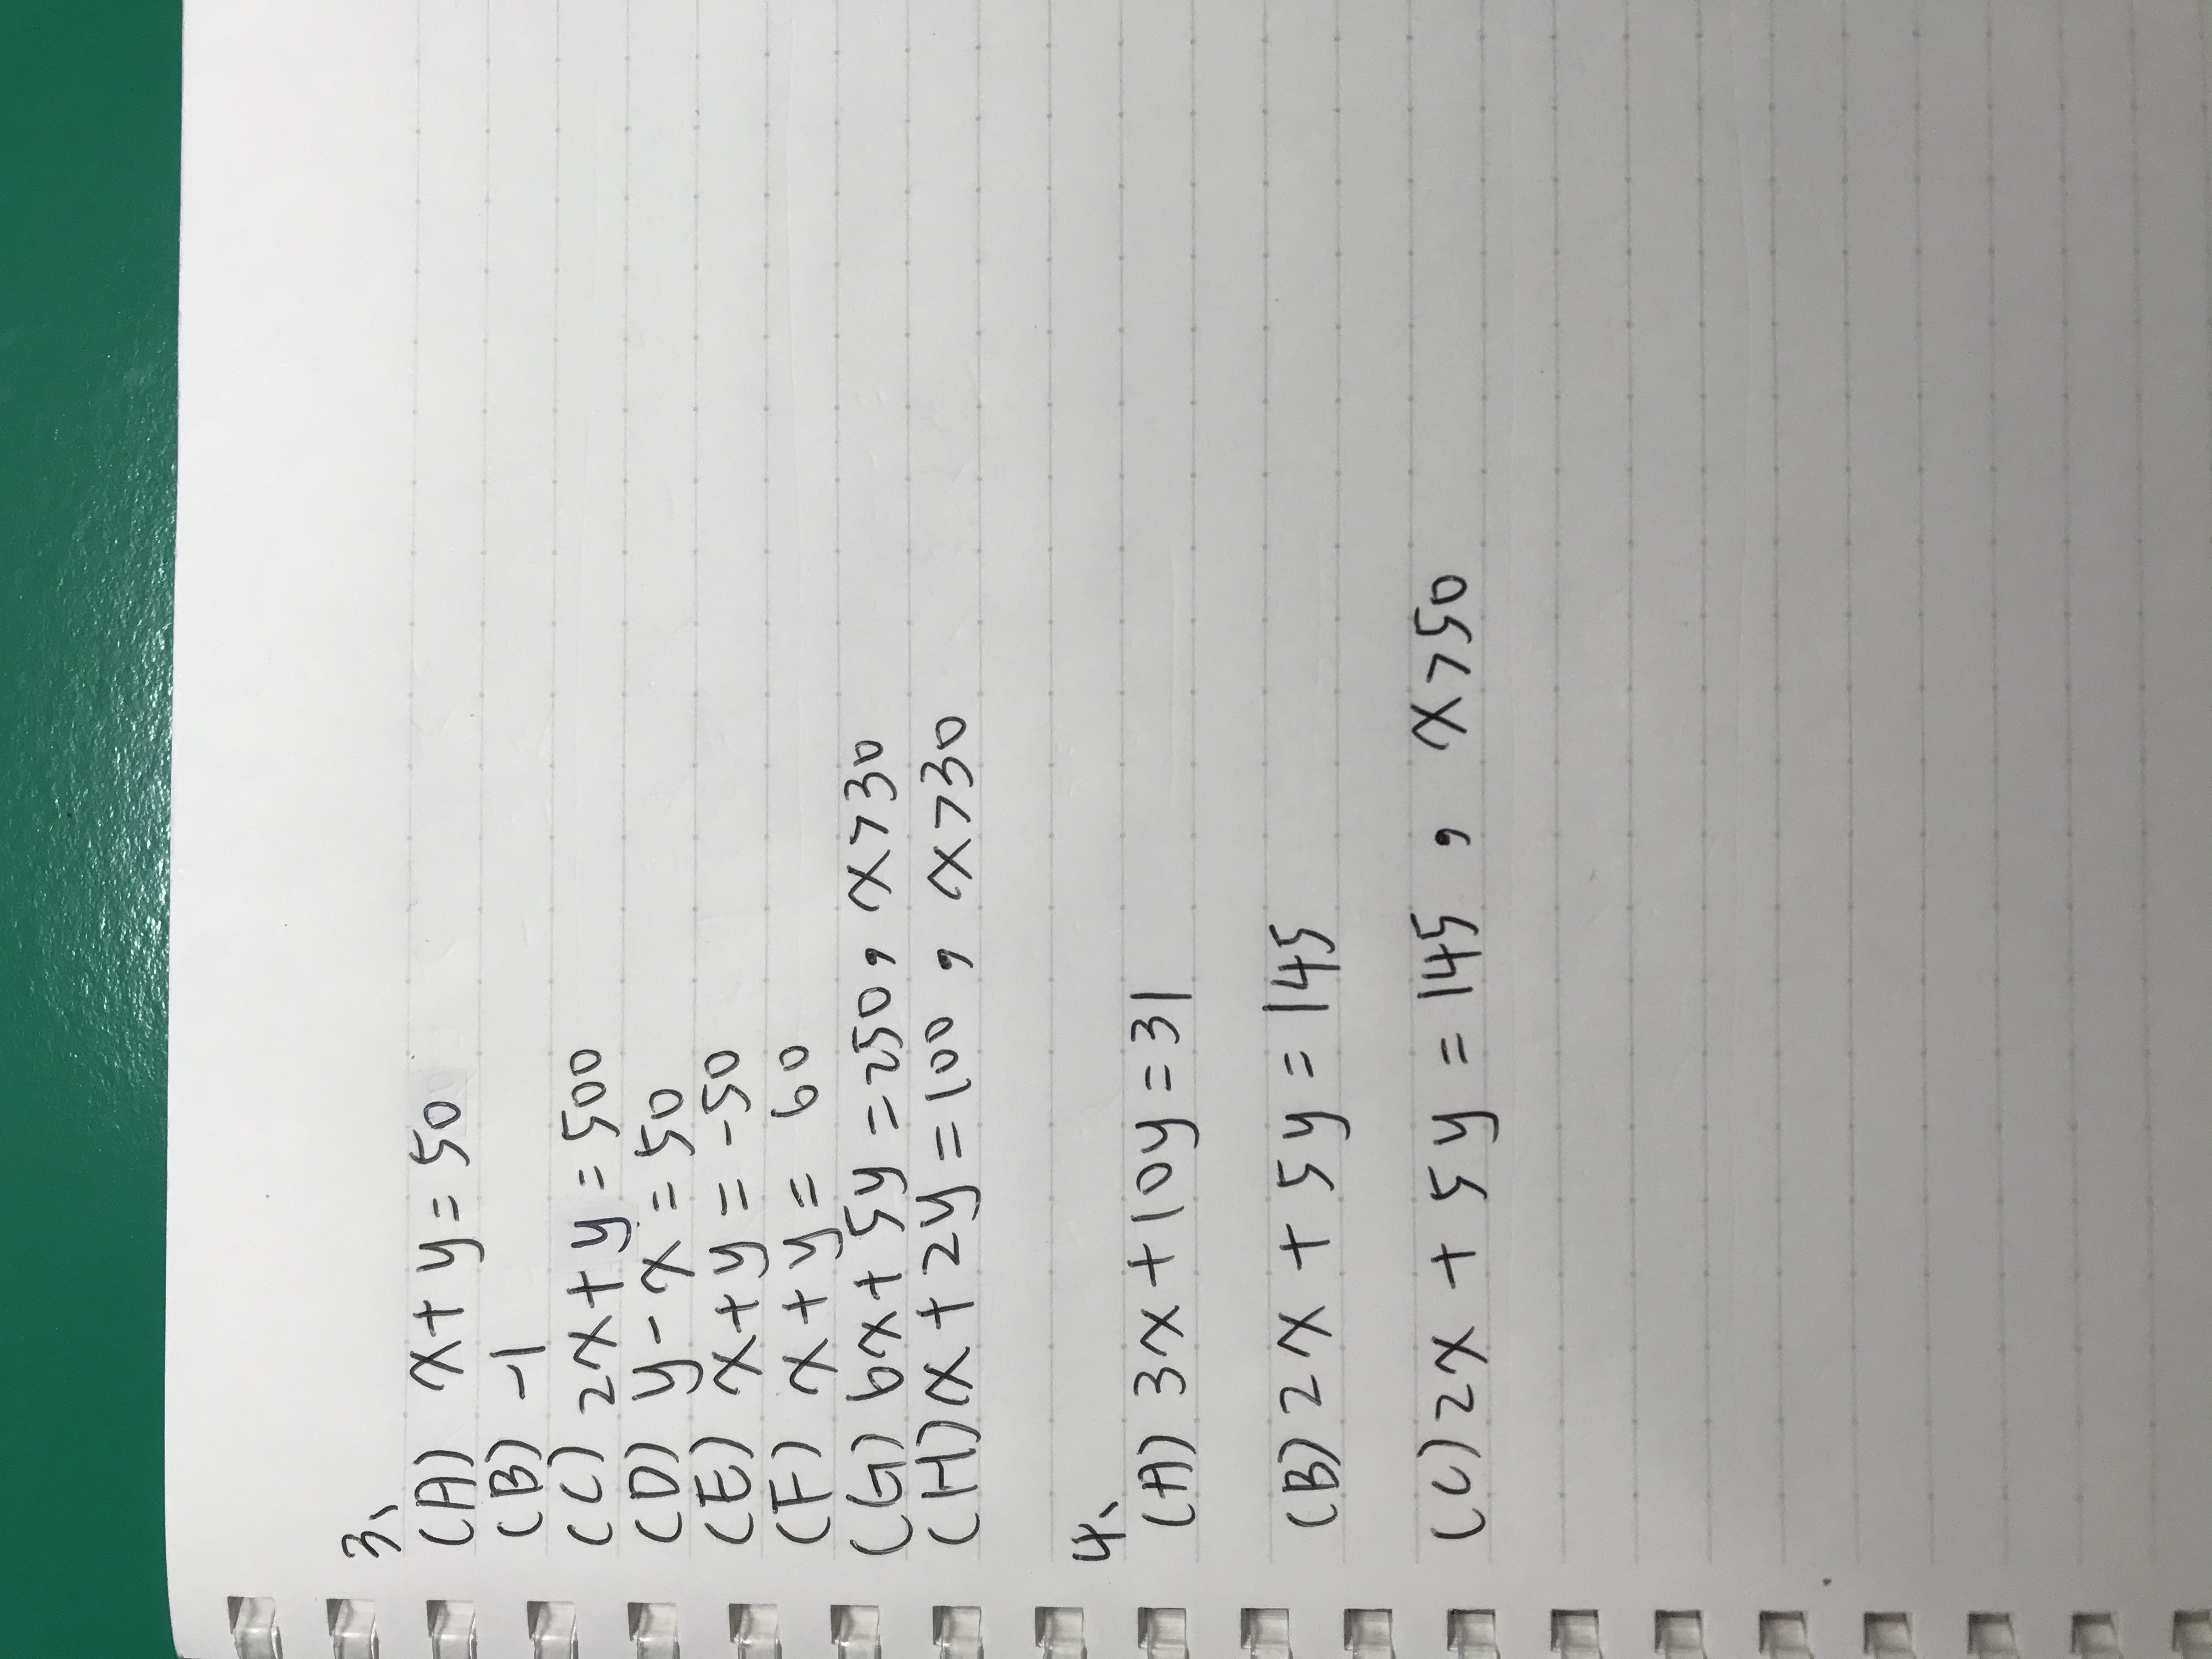 3、
(A) x+y=50
(B) -1
(C) 2x+y=500
(D) y-x=50
(E) x+y=-50
(F) x+y= 60
(G) 6x+5y=250, x>30
(H) x+2y=100, x>30
4、
(A) 3x+10y=31
(B) 2x+5y=145
(C) 2x+5y=145, x>50